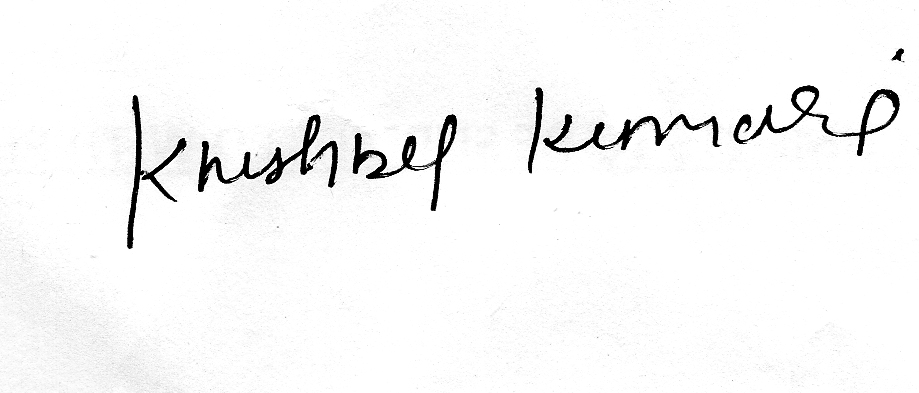 Khushbu Kumari